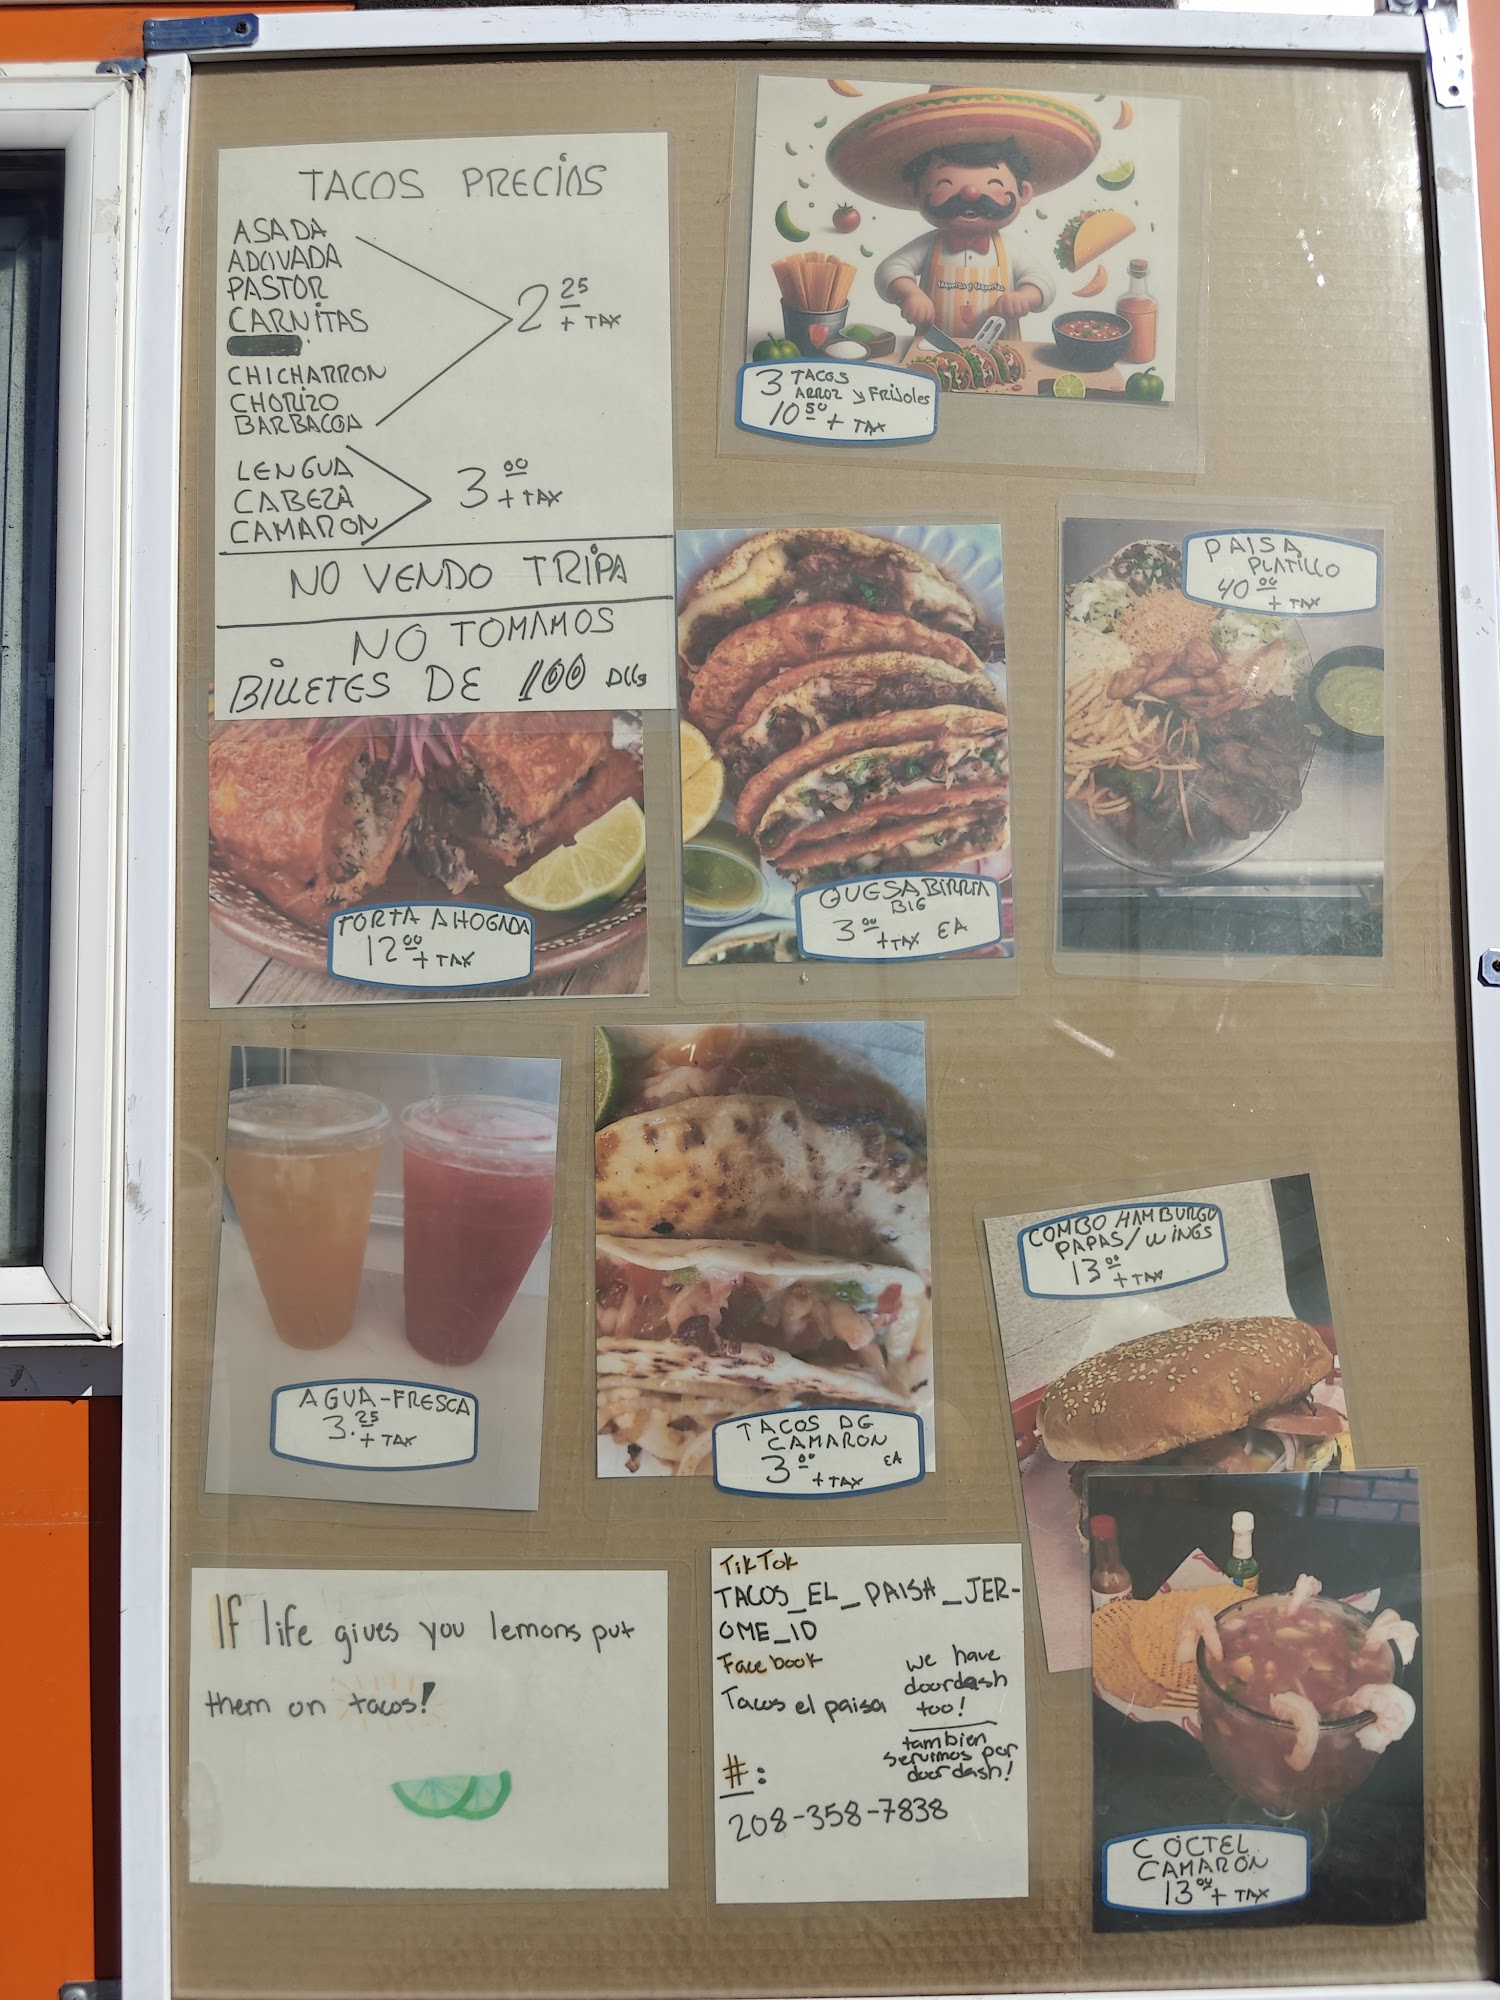 TACOS PRECIOS
ASADA
ADOVADA
PASTOR
CARNITAS
CHICHARRON
CHORIZO
BARBACOA
2 25 + TAX
LENGUA
CABEZA
CAMARON
3 00 + TAX
NO VENDO TRIPA
NO TOMAMOS
BILLETES DE 100 Dlls
taqueros y taquerías
3 TACOS
ARROZ y FRIJOLES
10 50 + TAX
TORTA AHOGADA
12 00 + TAX
QUESABIRRIA
BIG
3 00 + TAX EA
PAISA
PLATILLO
40 00 + TAX
AGUA-FRESCA
3.25 + TAX
TACOS DE
CAMARON
3 00 + TAX EA
COMBO HAMBURGO
PAPAS/WINGS
13 00 + TAX
If life gives you lemons put
them on tacos!
TikTok
TACOS_EL_PAISA_JER-
OME_ID
Facebook
Tacos el paisa
we have
doordash
too!
tambien
servimos por
doordash!
#:
208-358-7838
COCTEL
CAMARON
13 00 + TAX